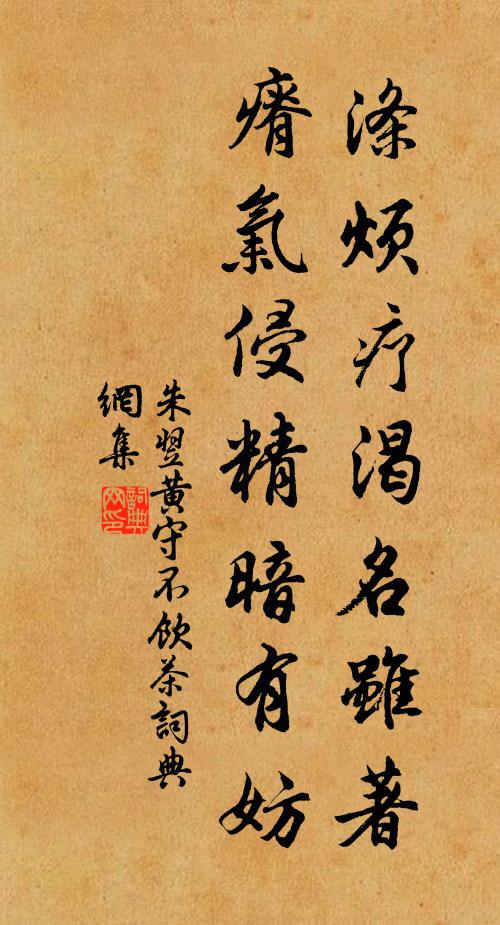 涤煩疗渴名雖著
瘠氣侵精暗有妨
朱翌黃守不飲茶詞典
網集
詞典
网印